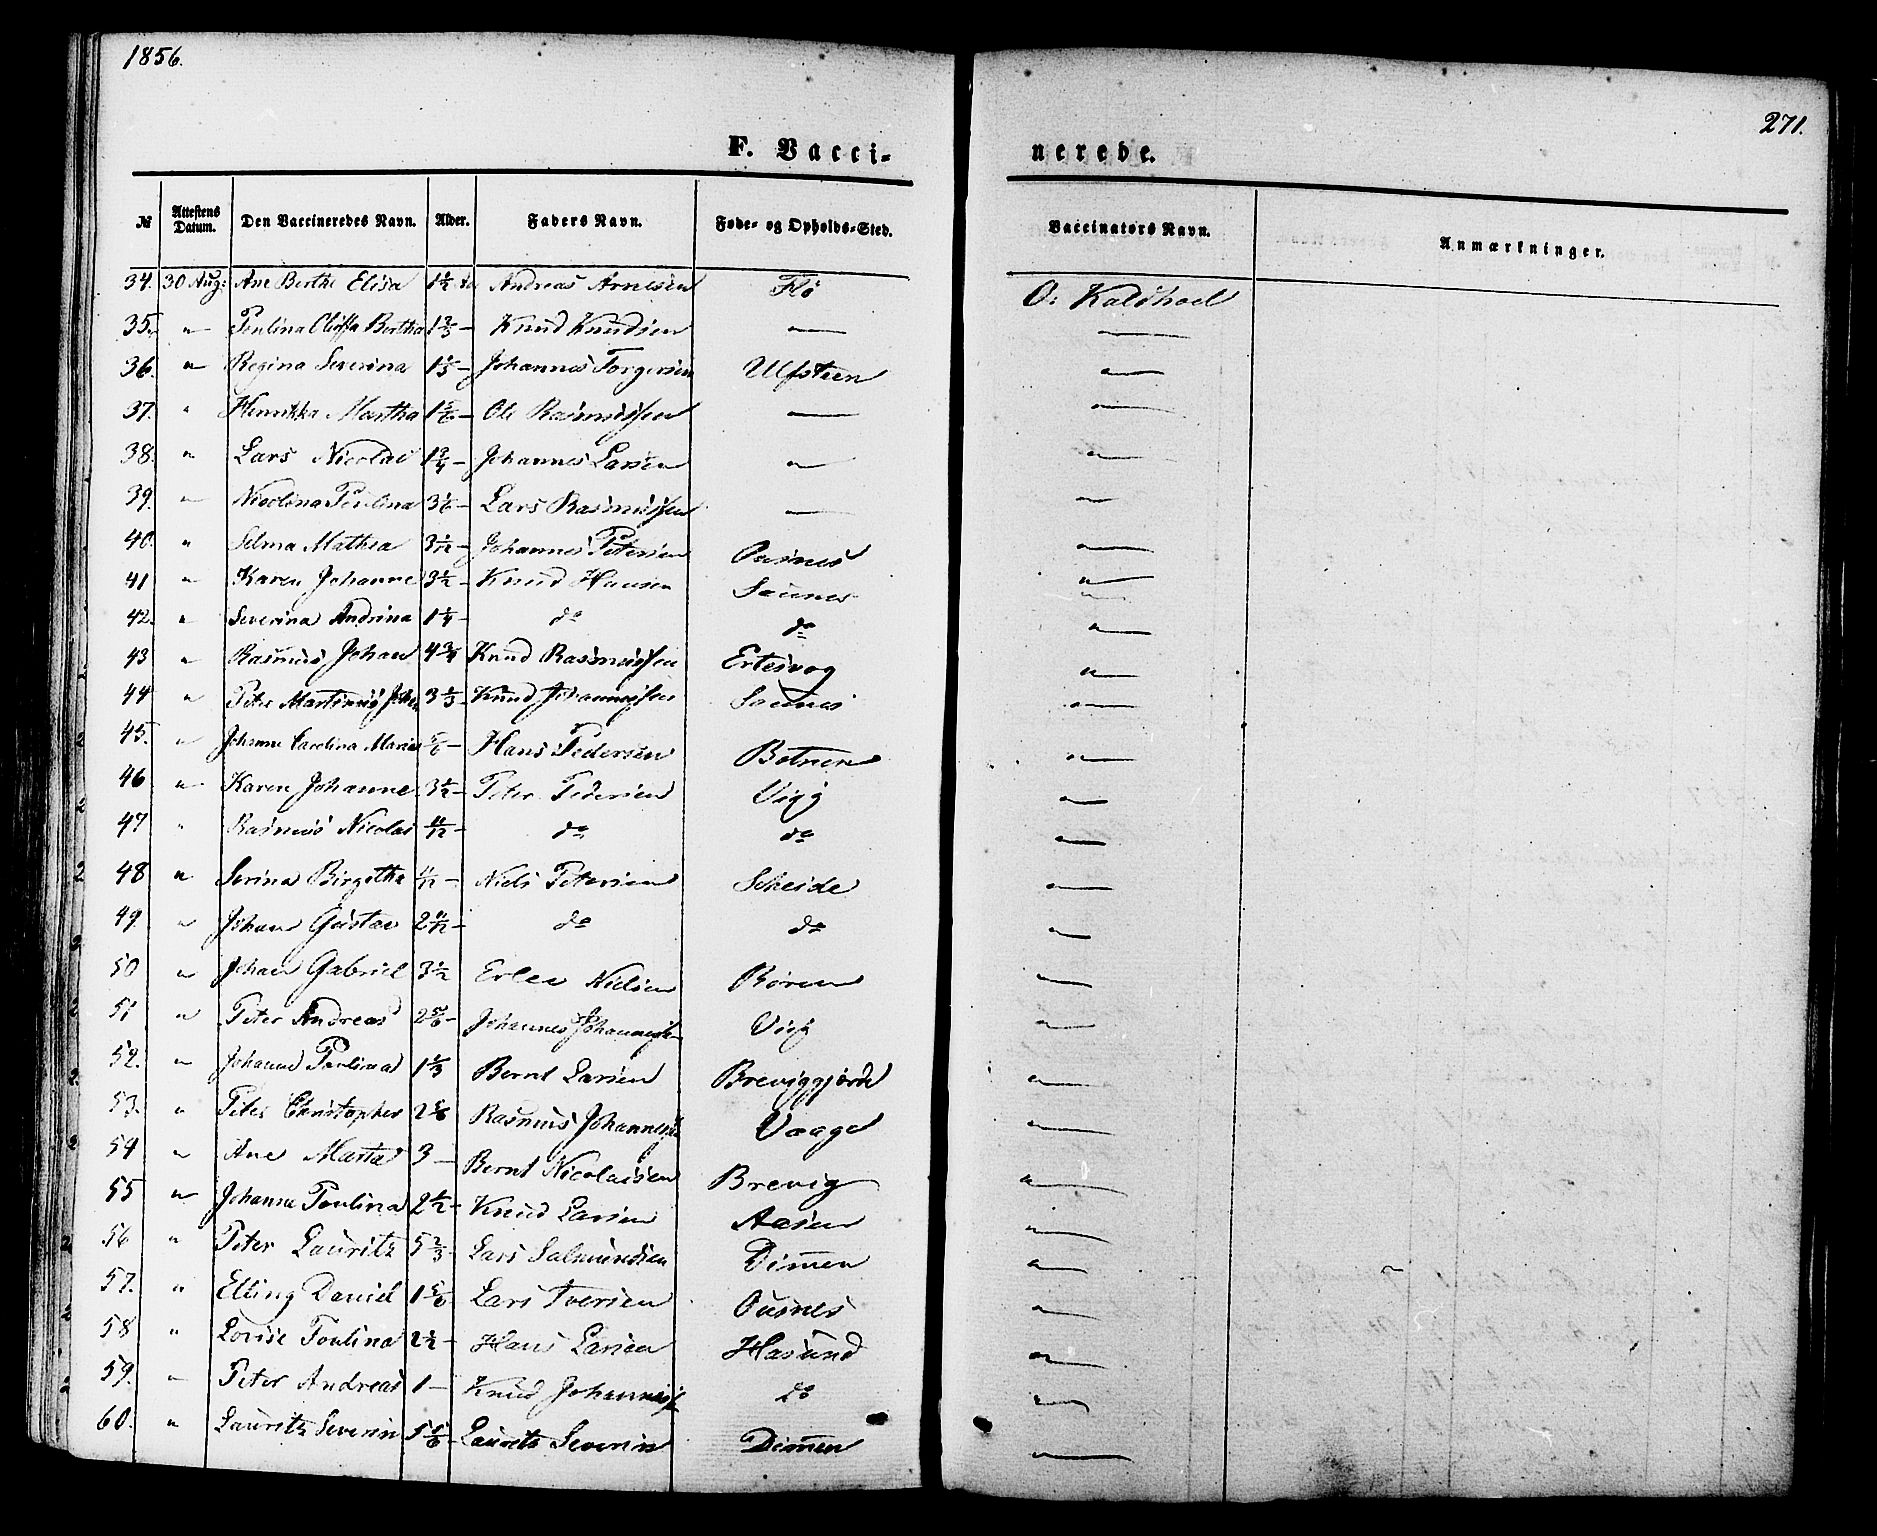 1856.
271.
F. Vacci-
nerede.
№ Attestens Datum. Den Vaccineredes Navn. Alder. Faders Navn. Føde- og Opholds-Sted. Vaccinators Navn. Anmærkninger.
34. 30 Aug: Ane Berthe Elisa 1½ Andreas Arnesen Flø O: Kaldhoel
35. " Poulina Bertha 1⅔ – Knud Knudsen — —
36. " Regina Severina 1⅓ – Johannes Torgersen Ulfsteen "
37. " Henrikka Martha 1⅚ – Ole Rasmussen — "
38. " Lars Nicolai 1¾ – Johannes Larsen " "
39. " Nicolina Poulina 3⅙ – Lars Rasmussen — "
40. " Selma Mathea – Johannes Petersen Ousnes "
41 " Karen Johanne 3½ – Knud Hansen Saunes "
42. " Severina Andrina 1¼ – do do "
43 " Rasmus Johan 4¾ Knud Rasmussen Ertesvog "
44 " Peter Martinus 3⅓ Knud Johannessen Saunes "
45. " Johanne Carolina Marie ⅚ – Hans Pedersen Botnen "
46 " Karen Johanne 3½ – Peter Pedersen Vigg "
47 " Rasmus Nicolai 11/12 – do do "
48 " Serina Birgitha 11/12 – Niels Petersen Scheide "
49. " Johan Gustav 2 11/12 – do do "
50 " Johan Gabriel 3½ Nielsen Røren "
51 " Peter Andreas 2⅚ – Johannes Johannessen Vig "
52. " Johanne Poulina 1⅓ Bernt Larsen Breviggjerde "
53. " Peter Christopher 2⅚ Rasmus Johannessen Vaage "
54 " Ane Marta 3 – Bernt Nicolaisen Brevig "
55 " Johanne Poulina 2½ – Knud Larsen Aasen "
56 " Peter Lauritz 5⅔ – Lars Salmundsen Dimmen "
57. " Elling David 1⅚ Lars Iversen Ousnes "
58 " Lovise Poulina 2½ – Hans Larsen Hasund "
59. " Peter Andreas 1 – Knud Johanness. do "
60. " Lauritz Severin 5⅙ – Laurits Severin Dimmen "